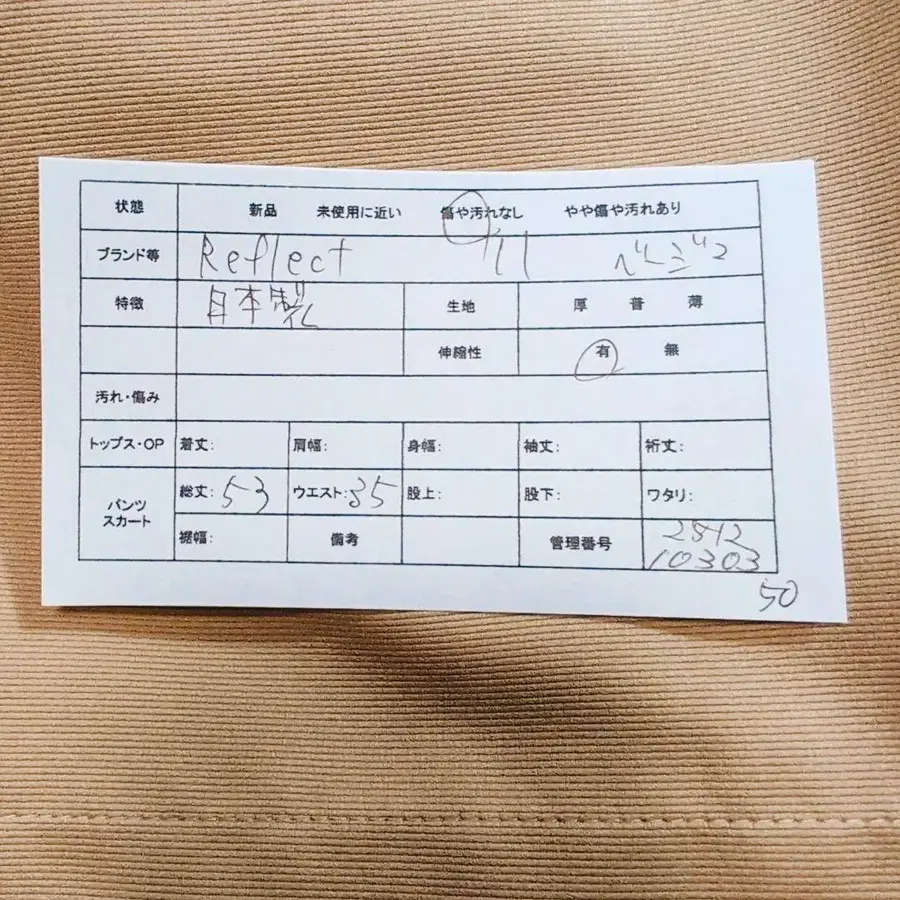 状態 新品 未使用に近い 傷や汚れなし やや傷や汚れあり
ブランド等 Reflect 11 ベージュ
特徴 日本製 生地 厚 普 薄
伸縮性 有 無
汚れ・傷み
トップス・OP 着丈: 肩幅: 身幅: 袖丈: 裄丈:
パンツ スカート 総丈:53 ウエスト:35 股上: 股下: ワタリ:
裾幅: 備考 管理番号
10303
50